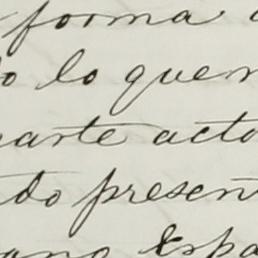 forma
lo quer
parte acto
do presen
ano Espa